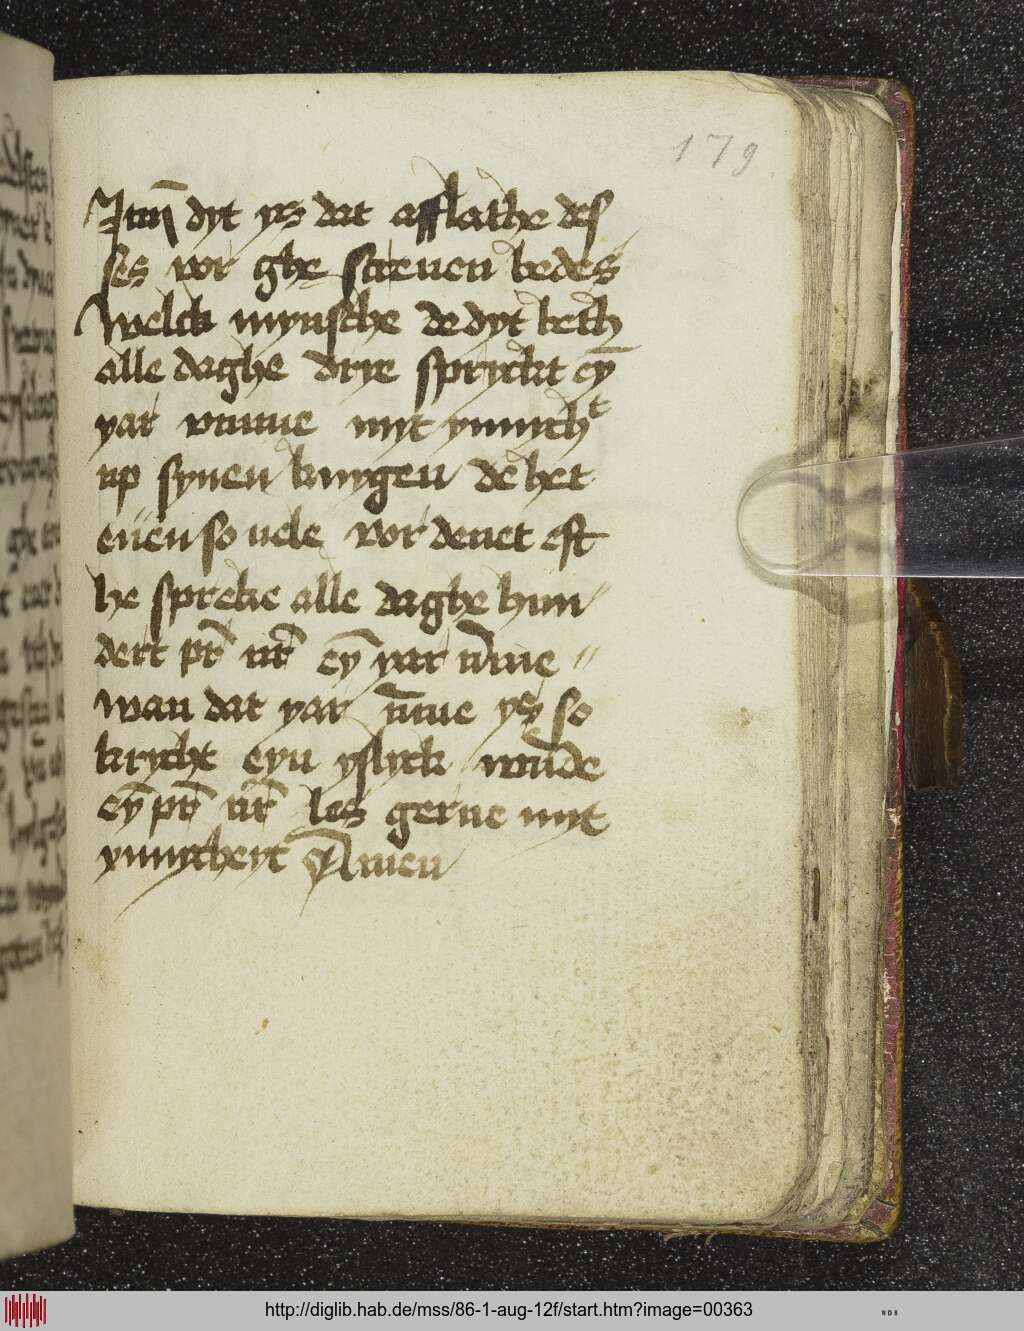 179
Jtem dyt ys dat afflathe des
ses vor ghe screuen bedes
Welck mynsche de dyt beth
alle daghe drye spryckt ey̅
yar vmme myt ynnich^t
up synen knygen de het
euen so uele vor denet eft
he spreke alle daghe hun〃
dert pr̅ nr̅ ey̅ yar v̅me〃
wan dat yar v̅me ys so
krycht eyn yslyck wu̅de
ey̅ pr̅ nr̅ les gerne myt
ynnycheyt Amen
http://diglib.hab.de/mss/86-1-aug-12f/start.htm?image=00363